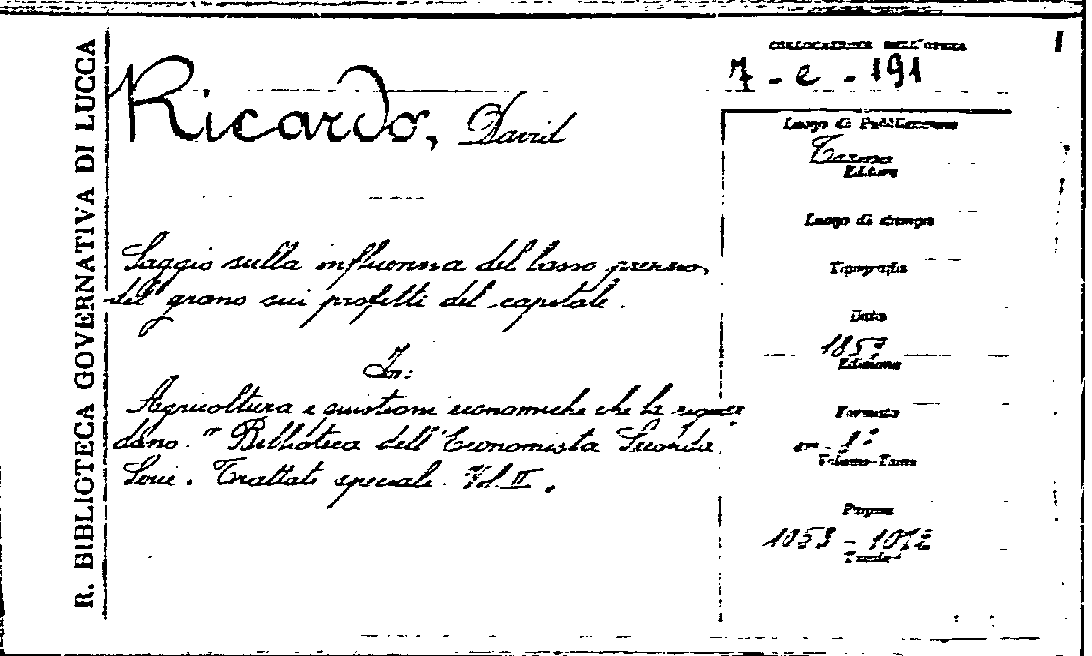 R. BIBLIOTECA GOVERNATIVA DI LUCCA
Ricardo, David
Saggio sulla influenza del basso prezzo
del grano sui profitti del capitale.
In:
Agricoltura e quistioni economiche che la riguar
dano. " Biblioteca dell'Economista Seconda
Serie. Trattati speciali. Vol II.
COLLOCAZIONE DELL'OPERA
7-e-191
1
Luogo di Pubblicazione
Torino
Editore
Luogo di stampa
Tipografia
Data
185
Edizione
Formato
8°
Volume-Tomo
Pagine
1053-1072
Tavole